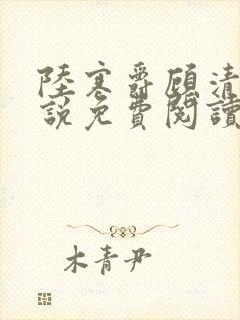 陸寒爵顧清
說免費閱讀
木青尹